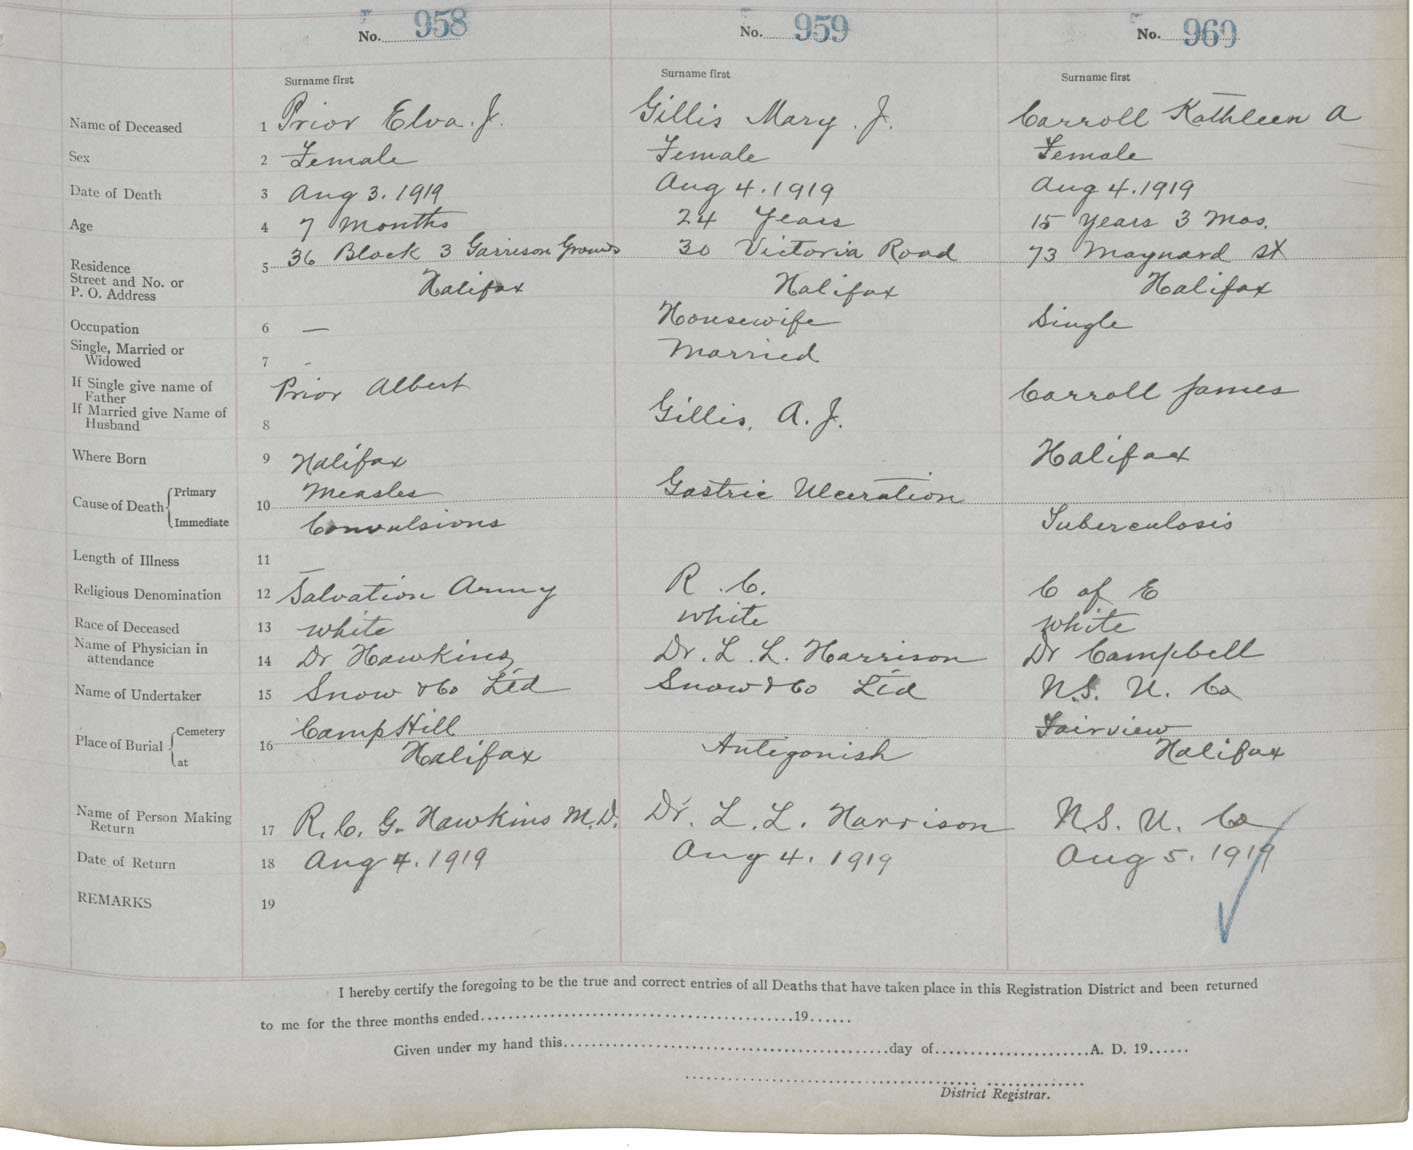 No. 958 No. 959 No. 960
Surname first Surname first Surname first
Name of Deceased 1 Prior Elva. J. Gillis Mary. J. Carroll Kathleen A
Sex 2 Female Female Female
Date of Death 3 Aug 3. 1919 Aug 4. 1919 Aug 4. 1919
Age 4 7 Months 24 Years 15 Years 3 Mos.
Residence
Street and No. or
P. O. Address
5 36 Block 3 Garrison Grounds 30 Victoria Road 73 Maynard St
Halifax Halifax Halifax
Occupation 6 — Housewife Single
Single, Married or
Widowed 7 - Married
If Single give name of
Father
If Married give Name of
Husband 8 Prior Albert Gillis, A. J. Carroll James
Where Born 9 Halifax Halifax
Cause of Death { Primary
Immediate 10 Measles Gastric Ulceration
Convulsions Tuberculosis
Length of Illness 11
Religious Denomination 12 Salvation Army R. C. C of E
Race of Deceased 13 White White White
Name of Physician in
attendance 14 Dr Hawkins Dr. L. L. Harrison Dr Campbell
Name of Undertaker 15 Snow & Co Ltd Snow & Co Ltd N.S. U. Co
Place of Burial { Cemetery
at 16 Camp Hill Fairview
Halifax Antigonish Halifax
Name of Person Making
Return 17 R. C. G. Hawkins M.D. Dr. L. L. Harrison N.S. U. Co
Date of Return 18 Aug 4. 1919 Aug 4. 1919 Aug 5. 1919
REMARKS 19
I hereby certify the foregoing to be the true and correct entries of all Deaths that have taken place in this Registration District and been returned
to me for the three months ended........19......
Given under my hand this........day of........A. D. 19......
District Registrar.